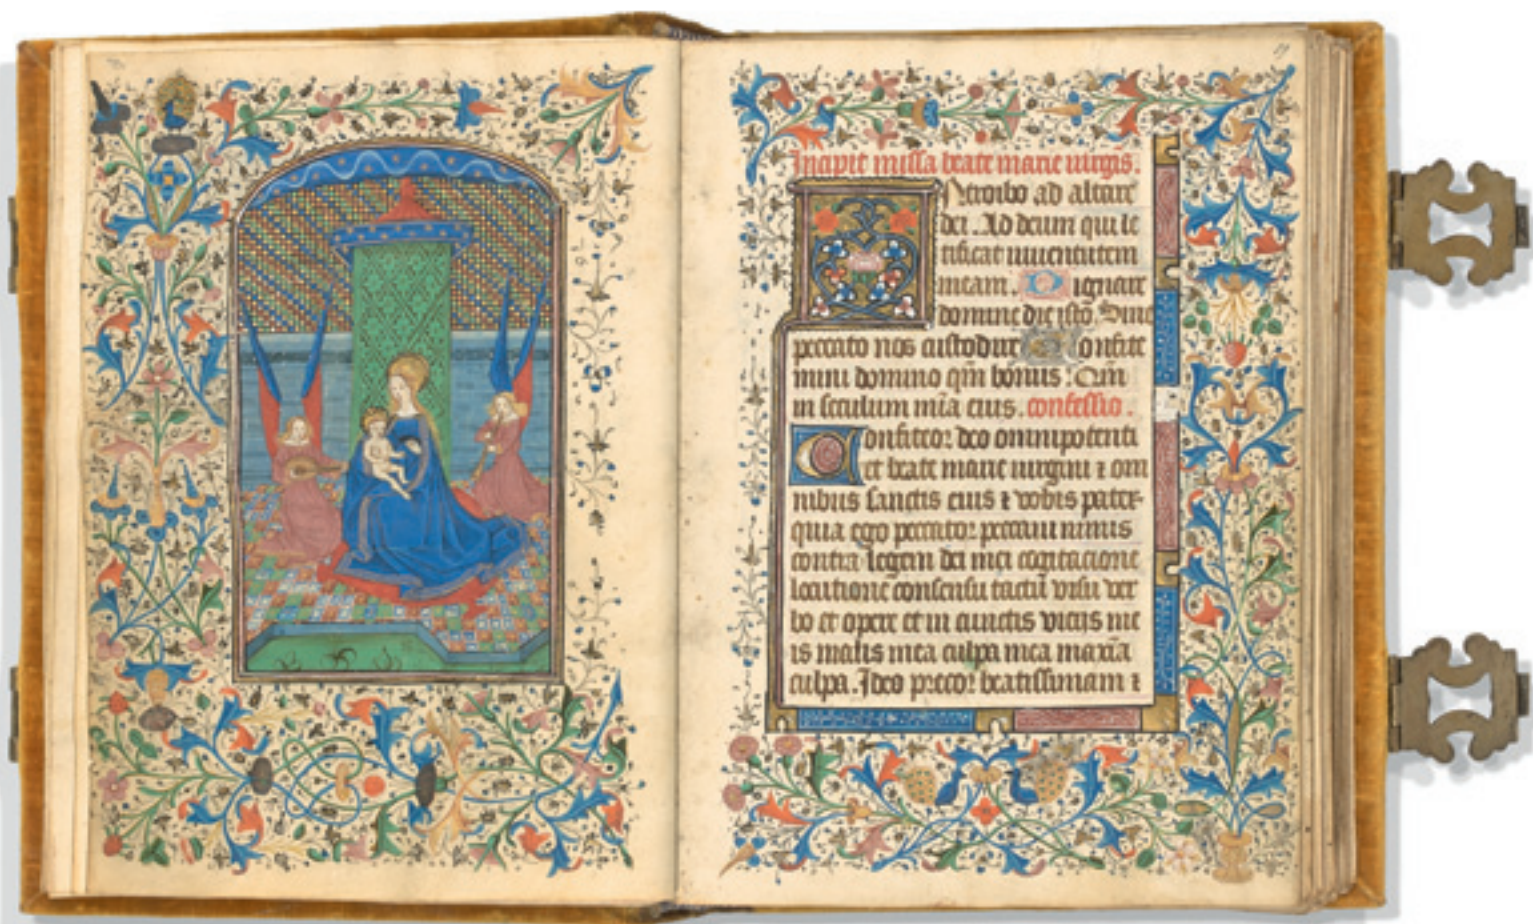 Incipit missa beate marie uirgis.
Introibo ad altare
dei. Ad deum qui le
tificat iuuentutem
meam. Dignare
domine die isto. Sine
peccato nos custodire Confite
mini domino qm̄ bonus. Qm̄
in seculum mīa eius. confessio.
Confiteor deo omnipotenti
et beate marie uirgini ⁊ om
nibus sanctis eius ⁊ vobis pater
quia ego peccator peccaui nimis
contra legem dei mei cogitacione
locutione consensu tactū visu ver
bo et opere et in cunctis vicijs me
is malis mea culpa mea maxīa
culpa. Ideo precor beatissimam ⁊